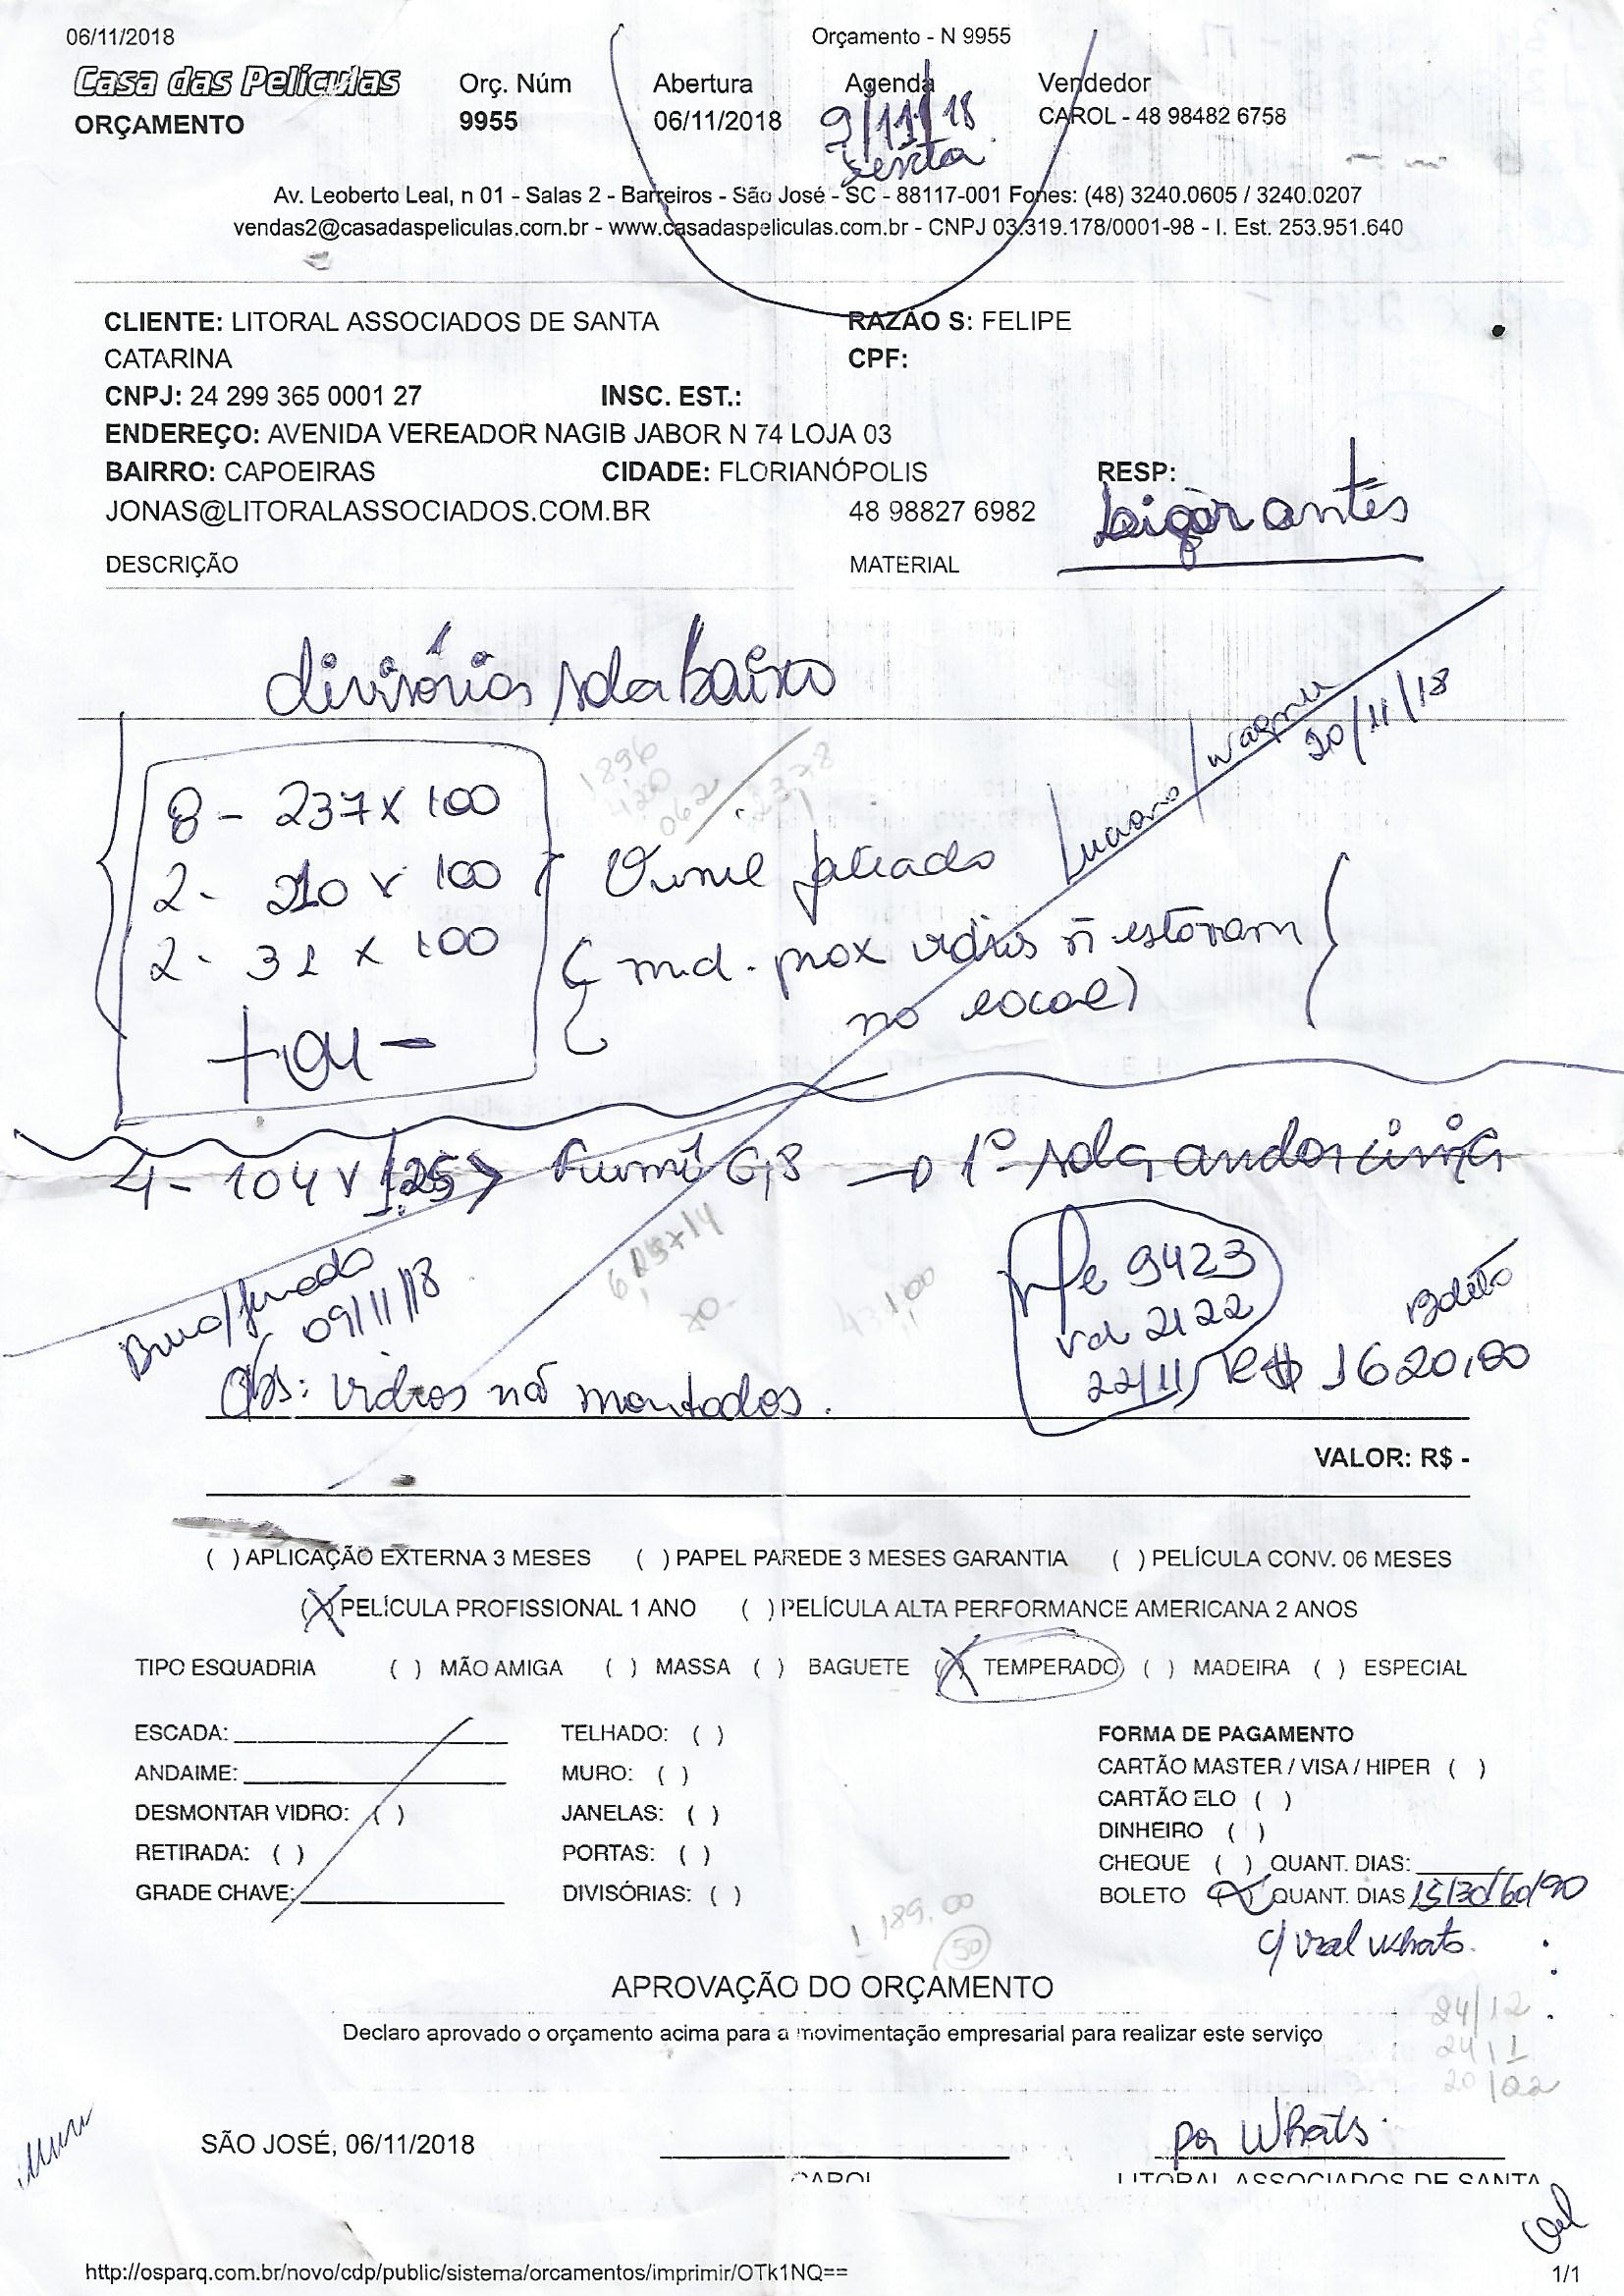 06/11/2018 Orçamento - N 9955
Casa das Películas Orç. Núm Abertura Agenda Vendedor
ORÇAMENTO 9955 06/11/2018 9/11/18 CAROL - 48 98482 6758
sexta
Av. Leoberto Leal, n 01 - Salas 2 - Barreiros - São José - SC - 88117-001 Fones: (48) 3240.0605 / 3240.0207
vendas2@casadaspeliculas.com.br - www.casadaspeliculas.com.br - CNPJ 03.319.178/0001-98 - I. Est. 253.951.640
CLIENTE: LITORAL ASSOCIADOS DE SANTA RAZÃO S: FELIPE
CATARINA CPF:
CNPJ: 24 299 365 0001 27 INSC. EST.:
ENDEREÇO: AVENIDA VEREADOR NAGIB JABOR N 74 LOJA 03
BAIRRO: CAPOEIRAS CIDADE: FLORIANÓPOLIS RESP:
JONAS@LITORALASSOCIADOS.COM.BR 48 98827 6982 Ligar antes
DESCRIÇÃO MATERIAL
divisórias sala baixo
Luciano / Wagner
20/11/18
8 - 237 x 100
2 - 210 x 100
2 - 31 x 100
+ ou -
jateado
(md. prox vidros ñ estavam
no local)
4 - 104 x 1.25 > Fumê G,8 → 1º sala andar cima
09/11/18
Nfe 9423
vd 2122
22/11 R$ 1620,00
Boleto
Obs: vidros não montados.
VALOR: R$ -
( ) APLICAÇÃO EXTERNA 3 MESES ( ) PAPEL PAREDE 3 MESES GARANTIA ( ) PELÍCULA CONV. 06 MESES
(X) PELÍCULA PROFISSIONAL 1 ANO ( ) PELÍCULA ALTA PERFORMANCE AMERICANA 2 ANOS
TIPO ESQUADRIA ( ) MÃO AMIGA ( ) MASSA ( ) BAGUETE (X) TEMPERADO ( ) MADEIRA ( ) ESPECIAL
ESCADA: TELHADO: ( ) FORMA DE PAGAMENTO
ANDAIME: MURO: ( ) CARTÃO MASTER / VISA / HIPER ( )
DESMONTAR VIDRO: ( ) JANELAS: ( ) CARTÃO ELO ( )
DINHEIRO ( )
RETIRADA: ( ) PORTAS: ( ) CHEQUE ( ) QUANT. DIAS:
GRADE CHAVE: DIVISÓRIAS: ( ) BOLETO (X) QUANT. DIAS 15/30/60/90
1189.00
50
APROVAÇÃO DO ORÇAMENTO
Declaro aprovado o orçamento acima para a movimentação empresarial para realizar este serviço
24/12
24/1
20/02
SÃO JOSÉ, 06/11/2018 por Whats.
CAROL LITORAL ASSOCIADOS DE SANTA
http://osparq.com.br/novo/cdp/public/sistema/orcamentos/imprimir/OTk1NQ== 1/1